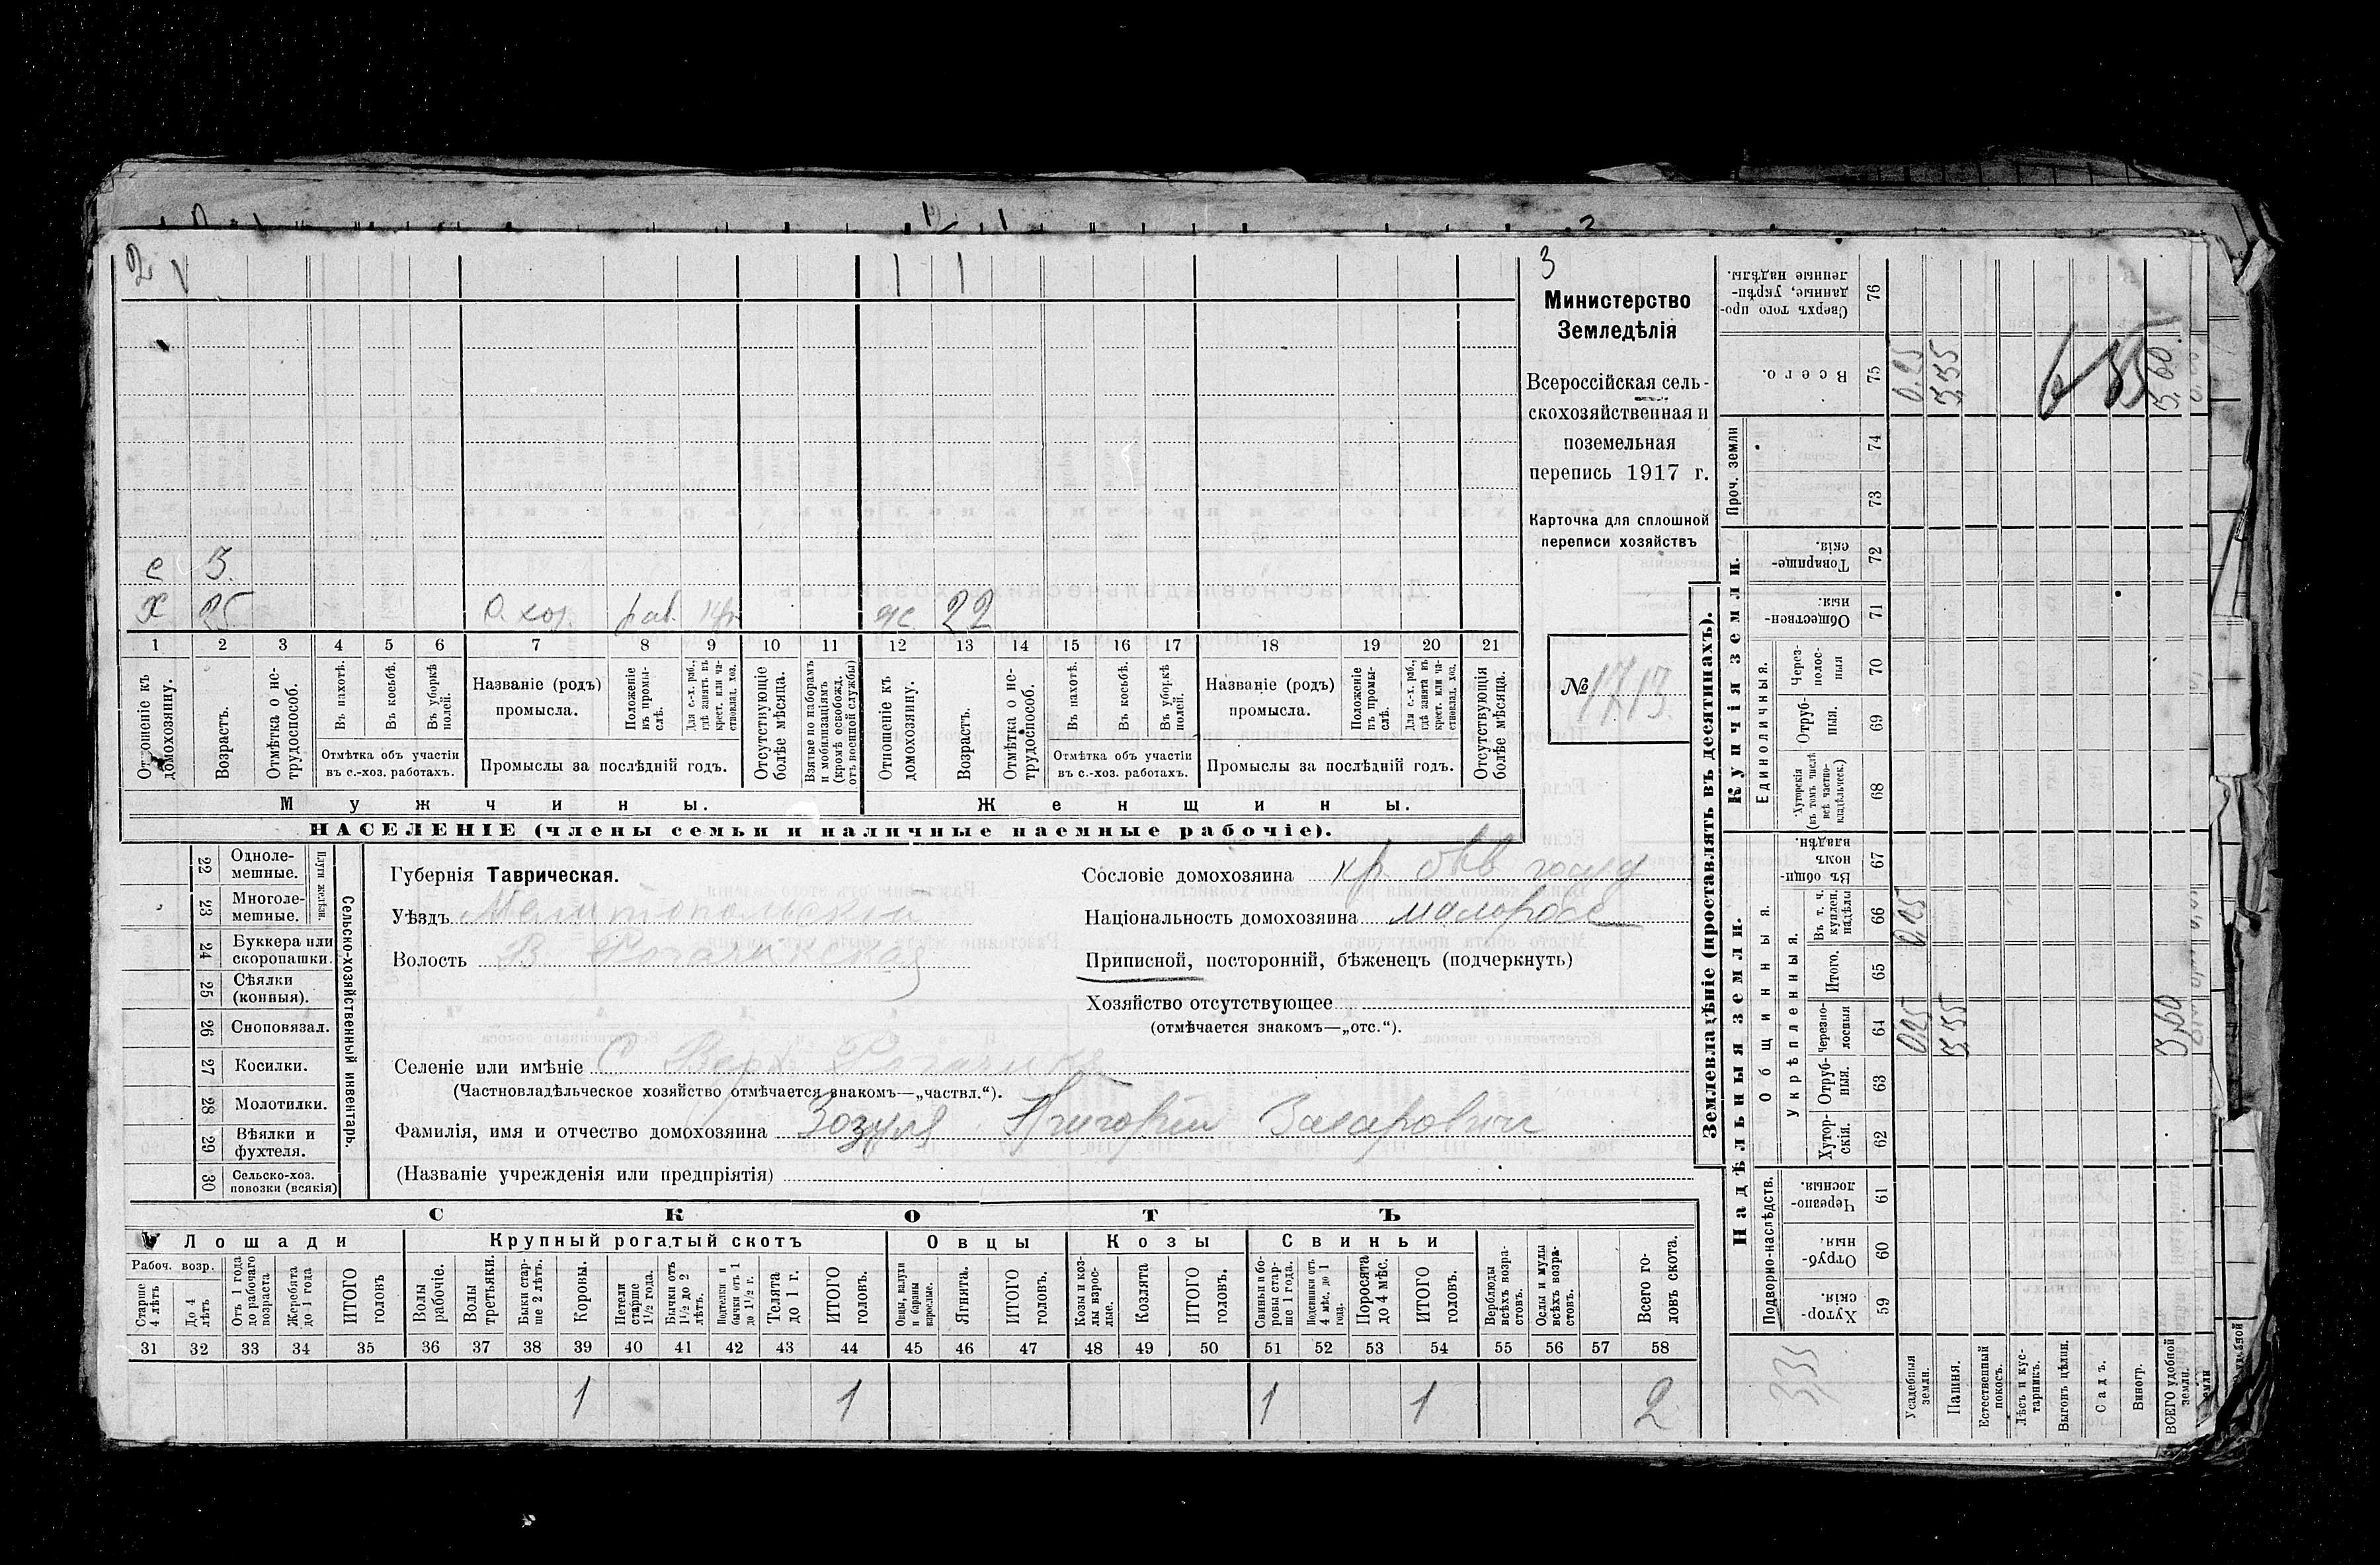 2 1 1
3
Министерство
Земледѣлія
Всероссійская сель-
скохозяйственная и
поземельная
перепись 1917 г.
Карточка для сплошной
переписи хозяйствъ
№ 1713
с 3.
х 25 раб. 22
1 2 3 4 5 6 7 8 9 10 11 12 13 14 15 16 17 18 19 20 21
Отношеніе къ домохозяину.
Возрастъ.
Отмѣтка о не-
трудоспособ.
Въ пахотѣ.
Въ косьбѣ.
Въ уборкѣ полей.
Отмѣтка объ участіи
въ с.-хоз. работахъ.
Названіе (родъ)
промысла.
Положеніе въ промы-
слѣ.
Для с.-х. раб., гдѣ занятъ въ крест. или ча-
стновлад. хоз.
Промыслы за послѣдній годъ.
Отсутствующіе болѣе мѣсяца.
Взятые по наборамъ и мобилизаціямъ (кромѣ освобожд. отъ военной службы)
Отношеніе къ домохозяину.
Возрастъ.
Отмѣтка о не-
трудоспособ.
Въ пахотѣ.
Въ косьбѣ.
Въ уборкѣ полей.
Отмѣтка объ участіи
въ с.-хоз. работахъ.
Названіе (родъ)
промысла.
Положеніе въ промы-
слѣ.
Для с.-х. раб., гдѣ занята въ крест. или ча-
стновлад. хоз.
Промыслы за послѣдній годъ.
Отсутствующія болѣе мѣсяца.
Мужчины.
Женщины.
НАСЕЛЕНІЕ (члены семьи и наличные наемные рабочіе).
22 Одноле-
мешные.
23 Многоле-
мешные.
Плуги желѣзн.
24 Буккера или
скоропашки.
25 Сѣялки
(конныя).
26 Сноповязал.
27 Косилки.
28 Молотилки.
29 Вѣялки и
фухтеля.
30 Сельско-хоз.
повозки (всякія)
Сельско-хозяйственный инвентарь.
Губернія Таврическая.
Уѣздъ Мелитопольскій
Волость В. Рогачикская
Селеніе или имѣніе С. Верх. Рогачикъ
(Частновладѣльческое хозяйство отмѣчается знакомъ—„частвл.“).
Фамилія, имя и отчество домохозяина Зозуля Григорій Захаровичъ
(Названіе учрежденія или предпріятія)
Сословіе домохозяина кр.
Національность домохозяина малоросс
Приписной, посторонній, бѣженецъ (подчеркнуть)
Хозяйство отсутствующее
(отмѣчается знакомъ—„отс.“).
СКОТЪ
Лошади
Крупный рогатый скотъ
Овцы
Козы
Свиньи
Рабоч. возр.
Старше 4 лѣтъ
До 4 лѣтъ
Отъ 1 года до рабочаго возраста
Жеребята до 1 года
ИТОГО головъ
Волы рабочіе.
Волы третьяки.
Быки стар-
ше 2 лѣтъ.
Коровы.
Нетели старше 1½ года.
Бычки отъ 1½ до 2 лѣтъ.
Подтелки и бычки отъ 1 до 1½ г.
Телята до 1 г.
ИТОГО головъ.
Овцы, валухи и бараны взрослые.
Ягнята.
ИТОГО головъ.
Козы и коз-
лы взрос-
лые.
Козлята
ИТОГО головъ.
Свиньи и бо-
ровы стар-
ше 1 года.
Подсвинки отъ 4 мѣс. до 1 года.
Поросята до 4 мѣс.
ИТОГО головъ.
Верблюды всѣхъ возра-
стовъ.
Ослы и мулы всѣхъ возра-
стовъ.
Всего го-
ловъ скота.
31 32 33 34 35 36 37 38 39 40 41 42 43 44 45 46 47 48 49 50 51 52 53 54 55 56 57 58
1 1 1 1 2
Землевладѣніе (проставлять въ десятинахъ).
Надѣльныя земли.
Купчія земли.
Проч. земли
Подворно-наслѣдств.
Общинныя
Укрѣпленныя.
Единоличныя.
Хутор-
скія. 59
Отруб-
ныя. 60
Черезпо-
лосныя. 61
Хутор-
скія. 62
Отруб-
ныя. 63
Черезпо-
лосныя 64
Итого. 65
Въ т. ч. куплен. надѣлы 66
Въ общин-
номъ владѣн. 67
Хуторскія (въ томъ числѣ всѣ частно-
владѣльческ.) 68
Отруб-
ныя. 69
Через-
полос-
ныя 70
Обществен-
ныя. 71
Товарище-
скія. 72
73
74
Всего. 75
Сверхъ того про-
данные, укрѣп-
ленные надѣлы. 76
Усадебныя земли. 0,25 0,25 0.25
Пашня. 3,35 3,35
Естественный покосъ.
Лѣсъ и кус-
тарникъ.
Выгонъ цѣлин.
Садъ.
Виногр.
ВСЕГО удобной земли. 3,60 3,60
3,35